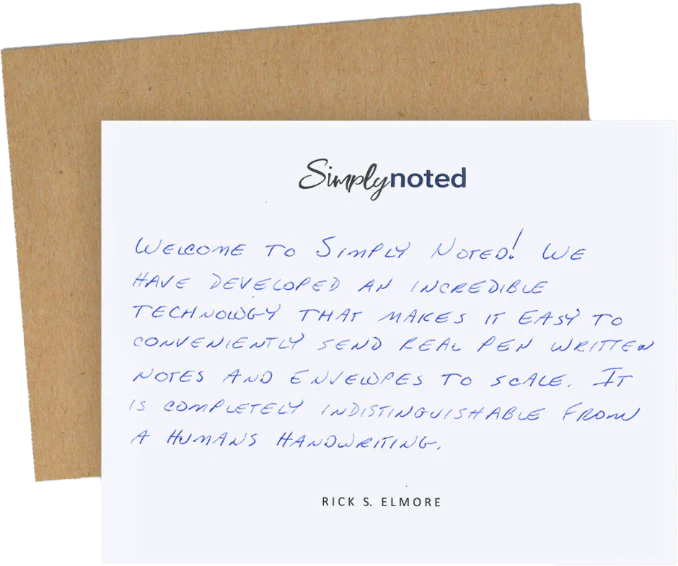 Simplynoted
WELCOME TO SIMPLY NOTED! WE
HAVE DEVELOPED AN INCREDIBLE
TECHNOLOGY THAT MAKES IT EASY TO
CONVENIENTLY SEND REAL PEN WRITTEN
NOTES AND ENVELOPES TO SCALE. IT
IS COMPLETELY INDISTINGUISHABLE FROM
A HUMANS HANDWRITING.
RICK S. ELMORE